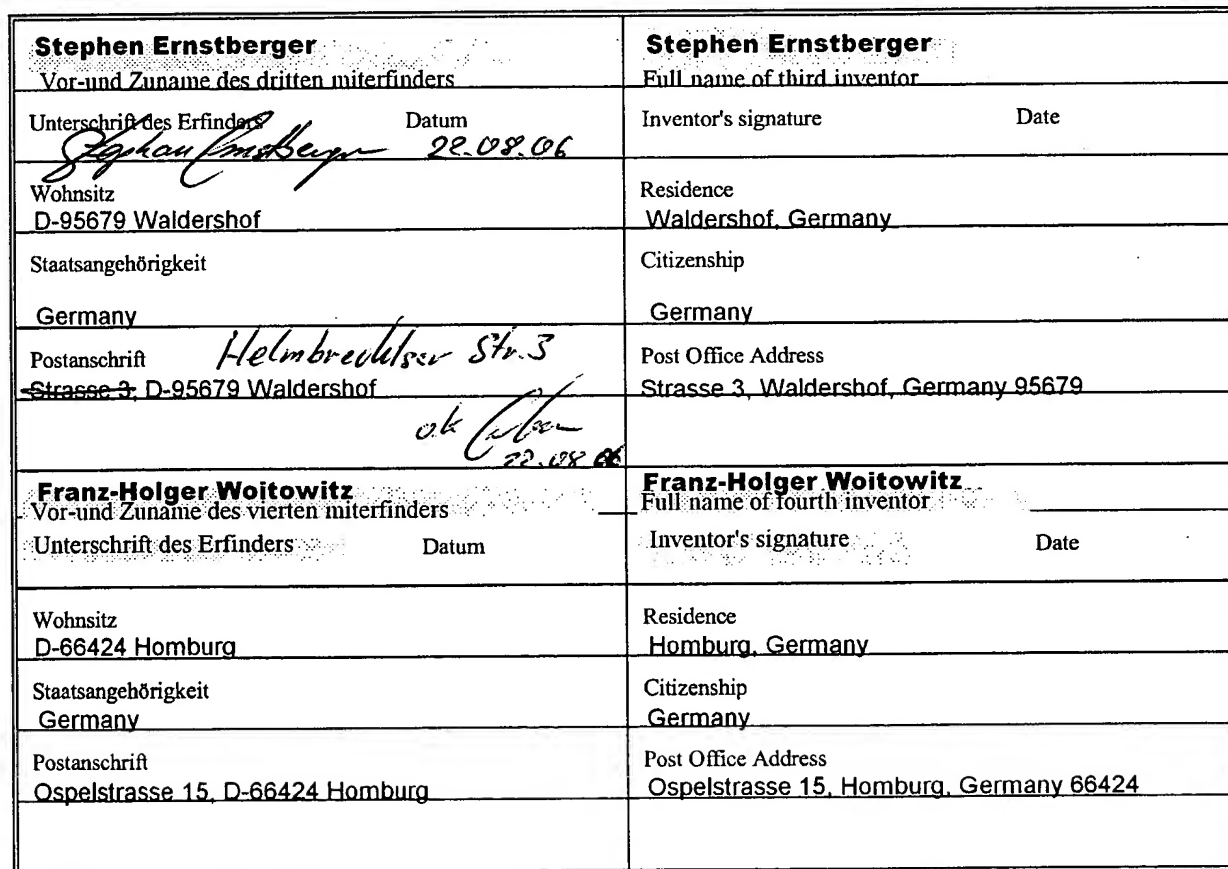 Stephen Ernstberger
Vor-und Zuname des dritten miterfinders
Unterschrift des Erfinders Datum
Stephan Ernstberger 22.08.06
Wohnsitz
D-95679 Waldershof
Staatsangehörigkeit
Germany
Postanschrift Helmbrechtser Str. 3
Strasse 3, D-95679 Waldershof
ok
22.08.06
Franz-Holger Woitowitz
Vor-und Zuname des vierten miterfinders
Unterschrift des Erfinders Datum
Wohnsitz
D-66424 Homburg
Staatsangehörigkeit
Germany
Postanschrift
Ospelstrasse 15, D-66424 Homburg
Stephen Ernstberger
Full name of third inventor
Inventor's signature Date
Residence
Waldershof, Germany
Citizenship
Germany
Post Office Address
Strasse 3, Waldershof, Germany 95679
Franz-Holger Woitowitz
Full name of fourth inventor
Inventor's signature Date
Residence
Homburg, Germany
Citizenship
Germany
Post Office Address
Ospelstrasse 15, Homburg, Germany 66424